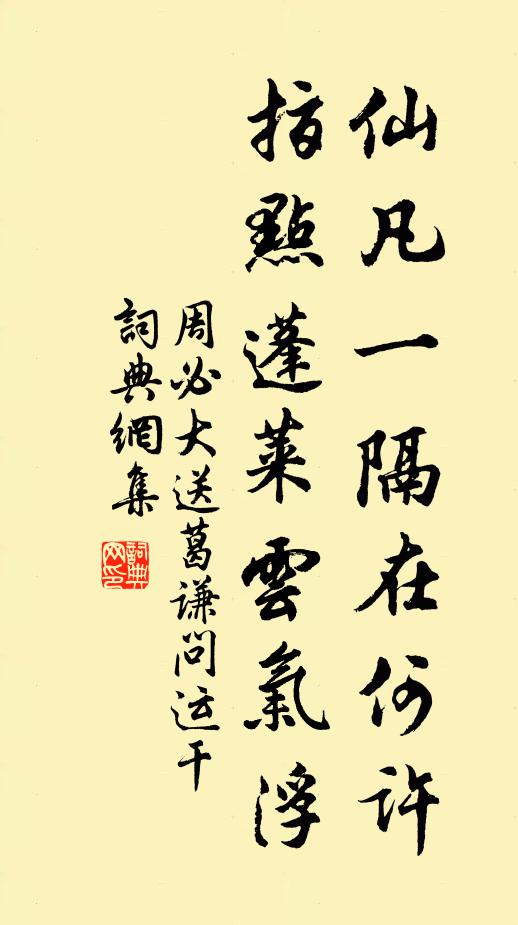 仙凡一隔在何许
指點蓬萊雲氣浮
周必大送葛谦问运干
詞典網集
詞典网印